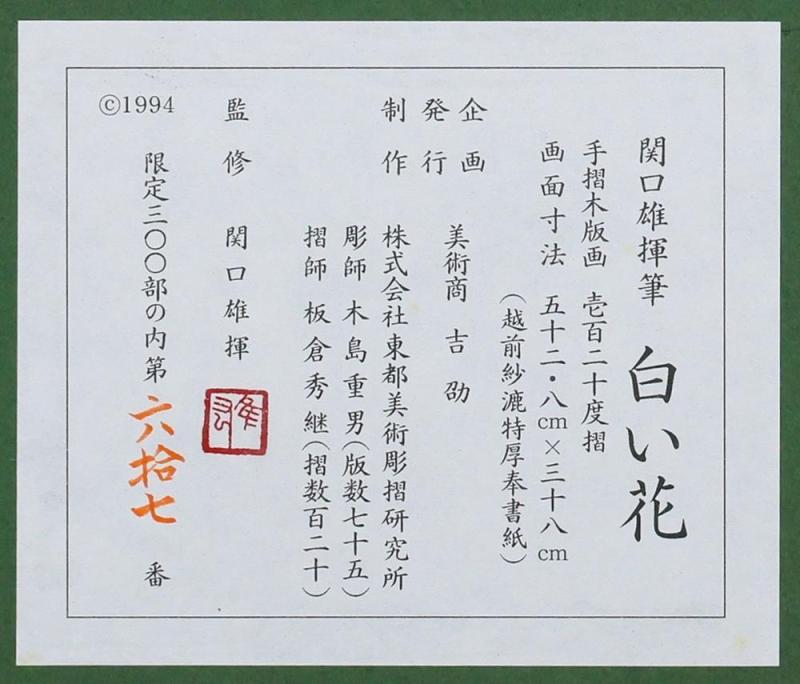 関口雄揮筆 白い花
手摺木版画 壱百二十度摺
画面寸法 五十二・八cm×三十八cm
(越前紗漉特厚奉書紙)
企画
発行 美術商 吉劭
制作 株式会社東都美術彫摺研究所
彫師 木島重男(版数七十五)
摺師 板倉秀継(摺数百二十)
監修 関口雄揮
限定三〇〇部の内第六拾七番
©1994